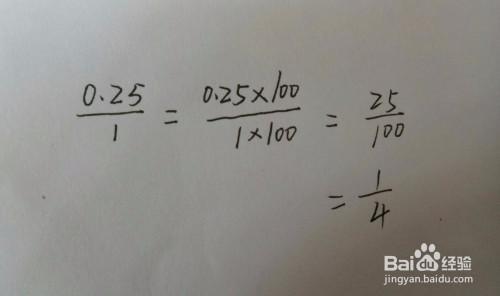 0.25/1 = 0.25×100/1×100 = 25/100
= 1/4
Baidu经验
jingyan.baidu.com